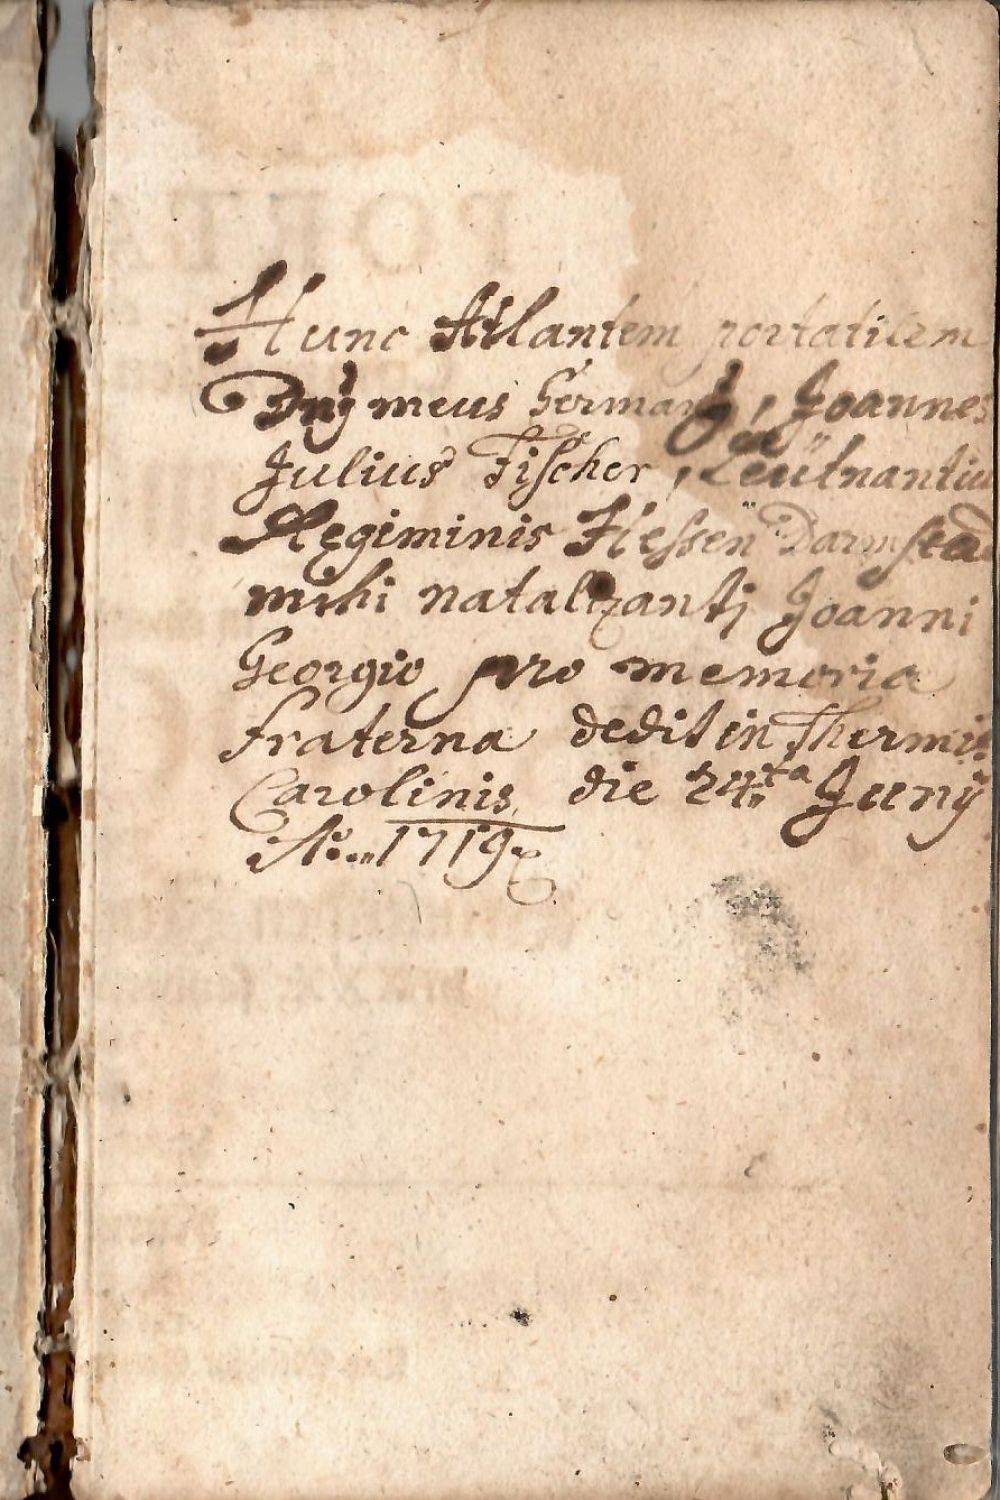 Hunc Atlantem portatilem
Dnq meus Germanq, Joannes
Julius Fischer, Leütnantius
Regiminis Hessen Darmstad
mihi natalizantj Joanni
Georgio pro memoria
fraterna dedit in Thermis
Carolinis, die 24ta Junÿ
Ao 1719